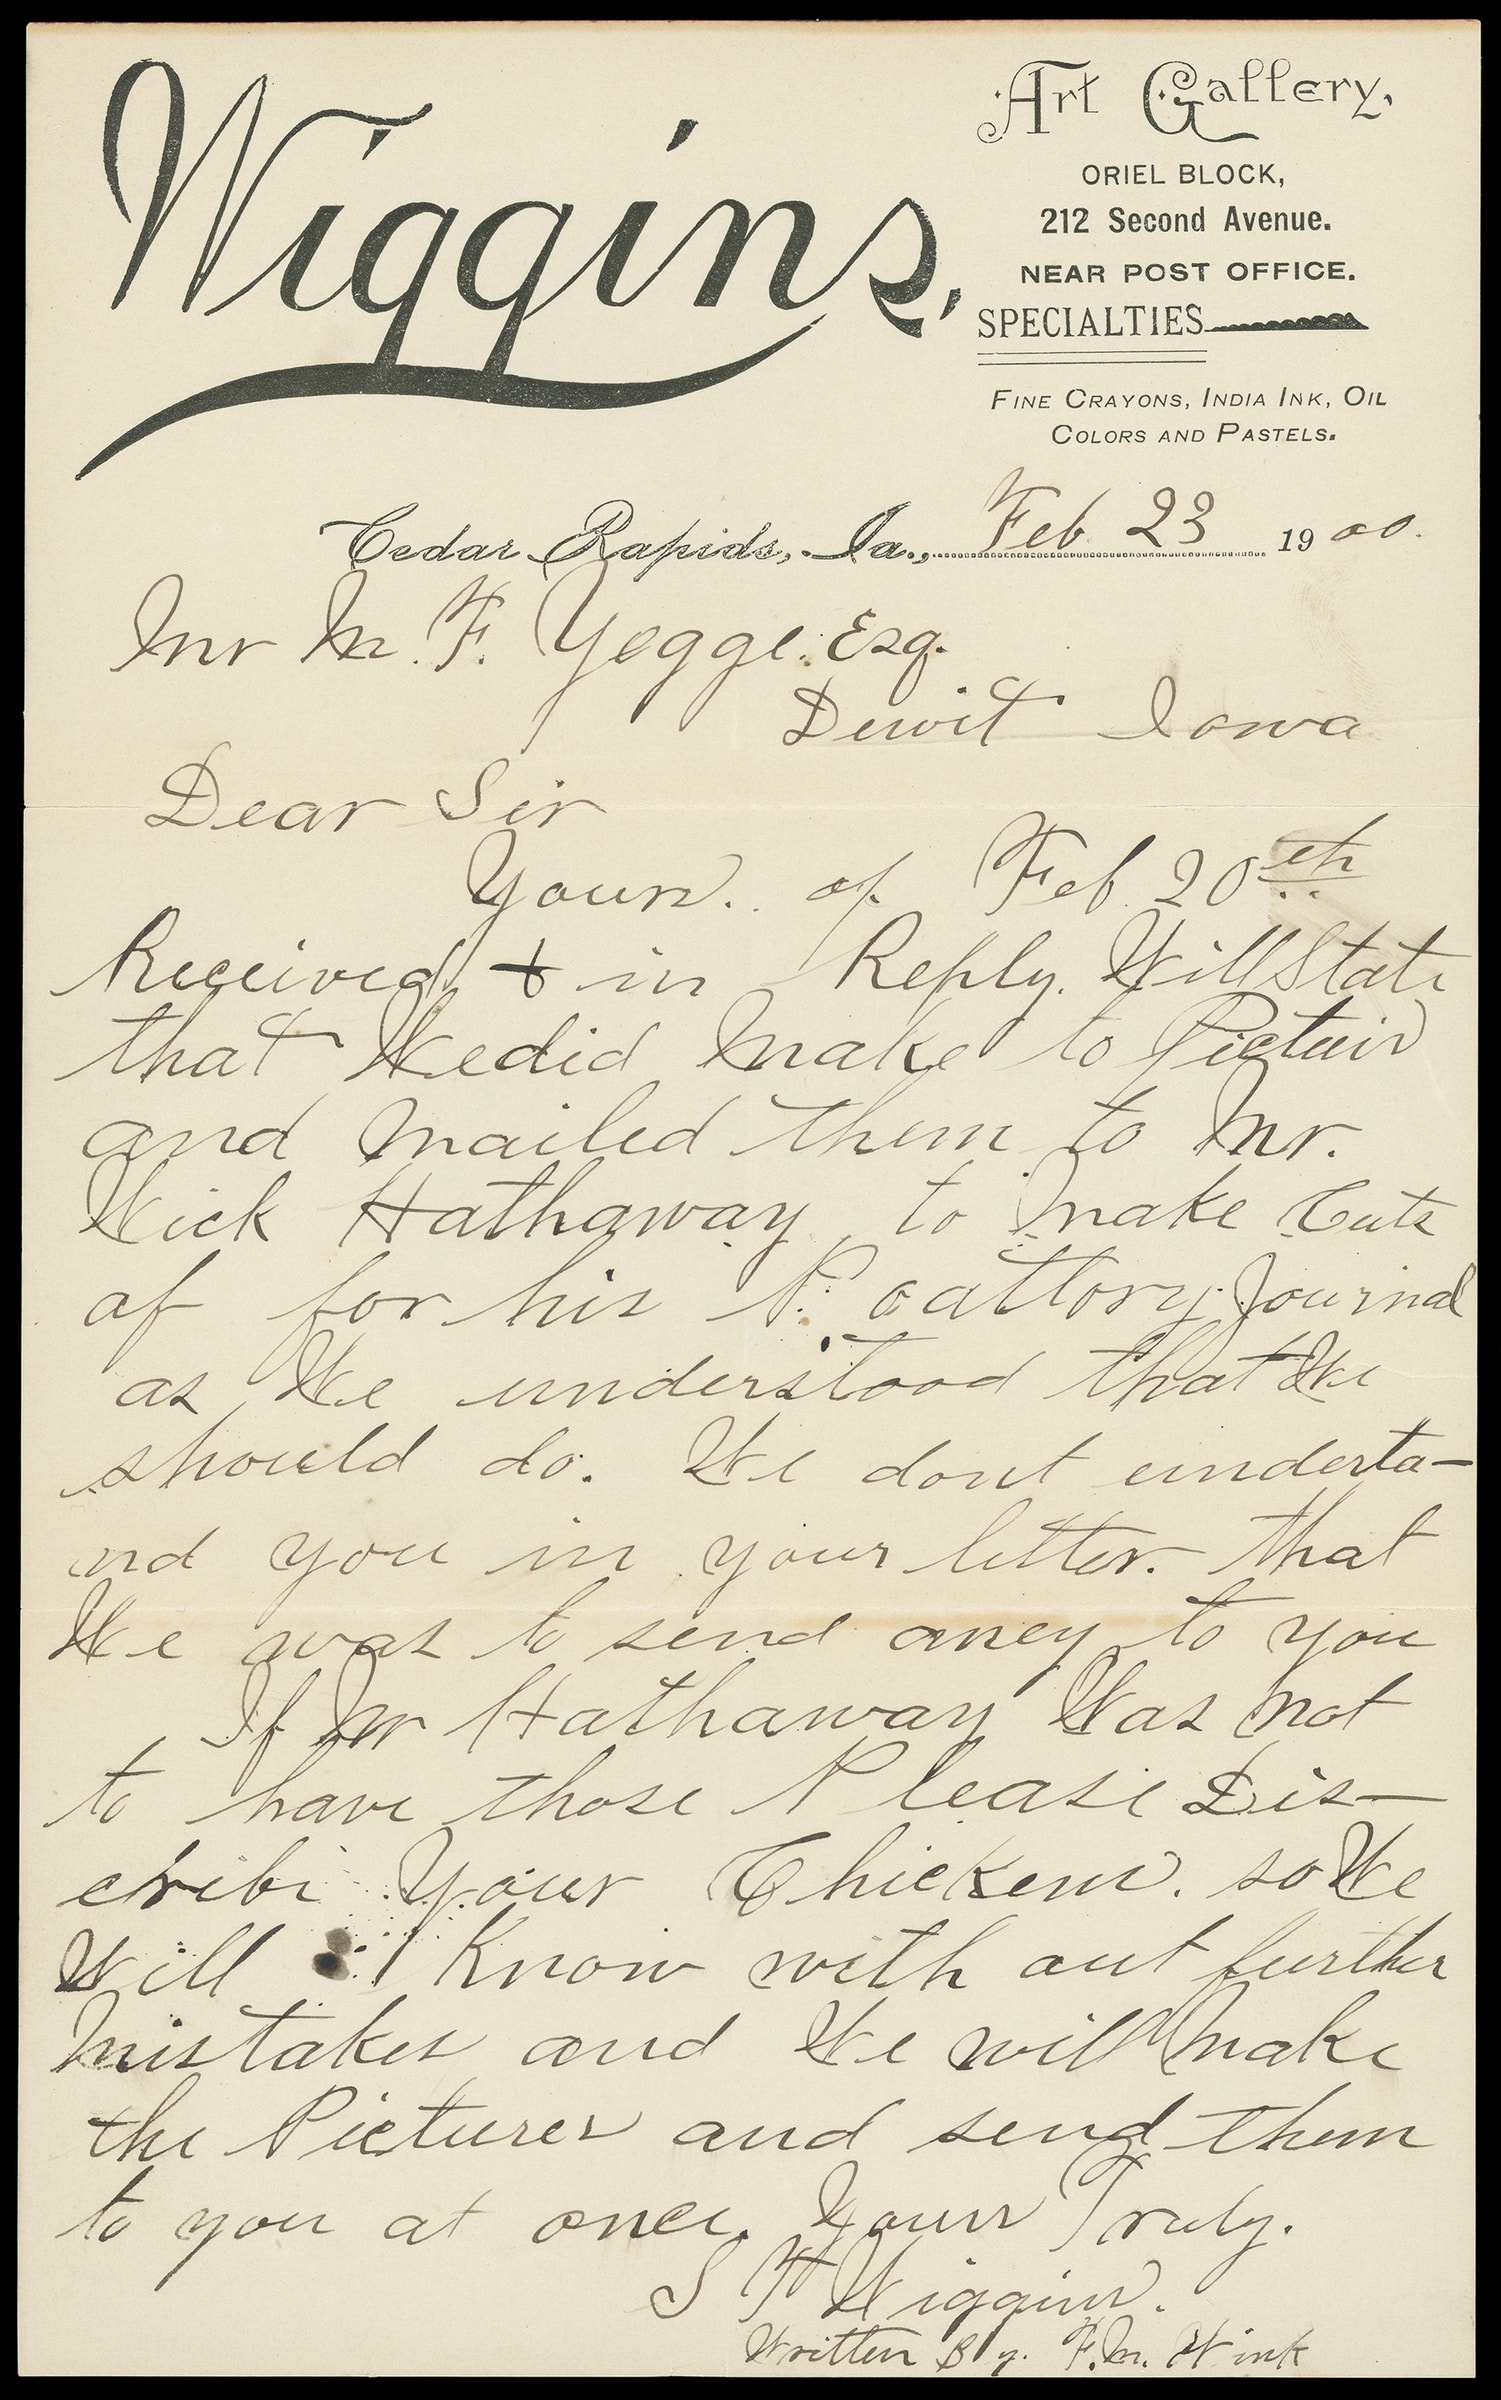 Wiggins,
Art Gallery,
ORIEL BLOCK,
212 Second Avenue.
NEAR POST OFFICE.
SPECIALTIES
FINE CRAYONS, INDIA INK, OIL
COLORS AND PASTELS.
Cedar Rapids, Ia., Feb 23 1900.
Mr M. F. Yegge. Esq.
Dewit Iowa
Dear Sir
Yours. of Feb 20th
Received & in Reply. Will State
that We did Make to Pictuirs
and Mailed them to Mr.
Wick Hathaway to Make Cuts
of for his P. oaltory Journal
as We understood that We
should do. We dont understa-
nd you in your letter. that
We was to send aney to you
If Mr Hathaway Was Not
to have those Please Dis-
cribe Your Chickens. so We
Will Know with out further
Mistakes and We will Make
the Pictures and send them
to you at once. Yours Truly.
S Wiggins.
Written By. F. M. Wink